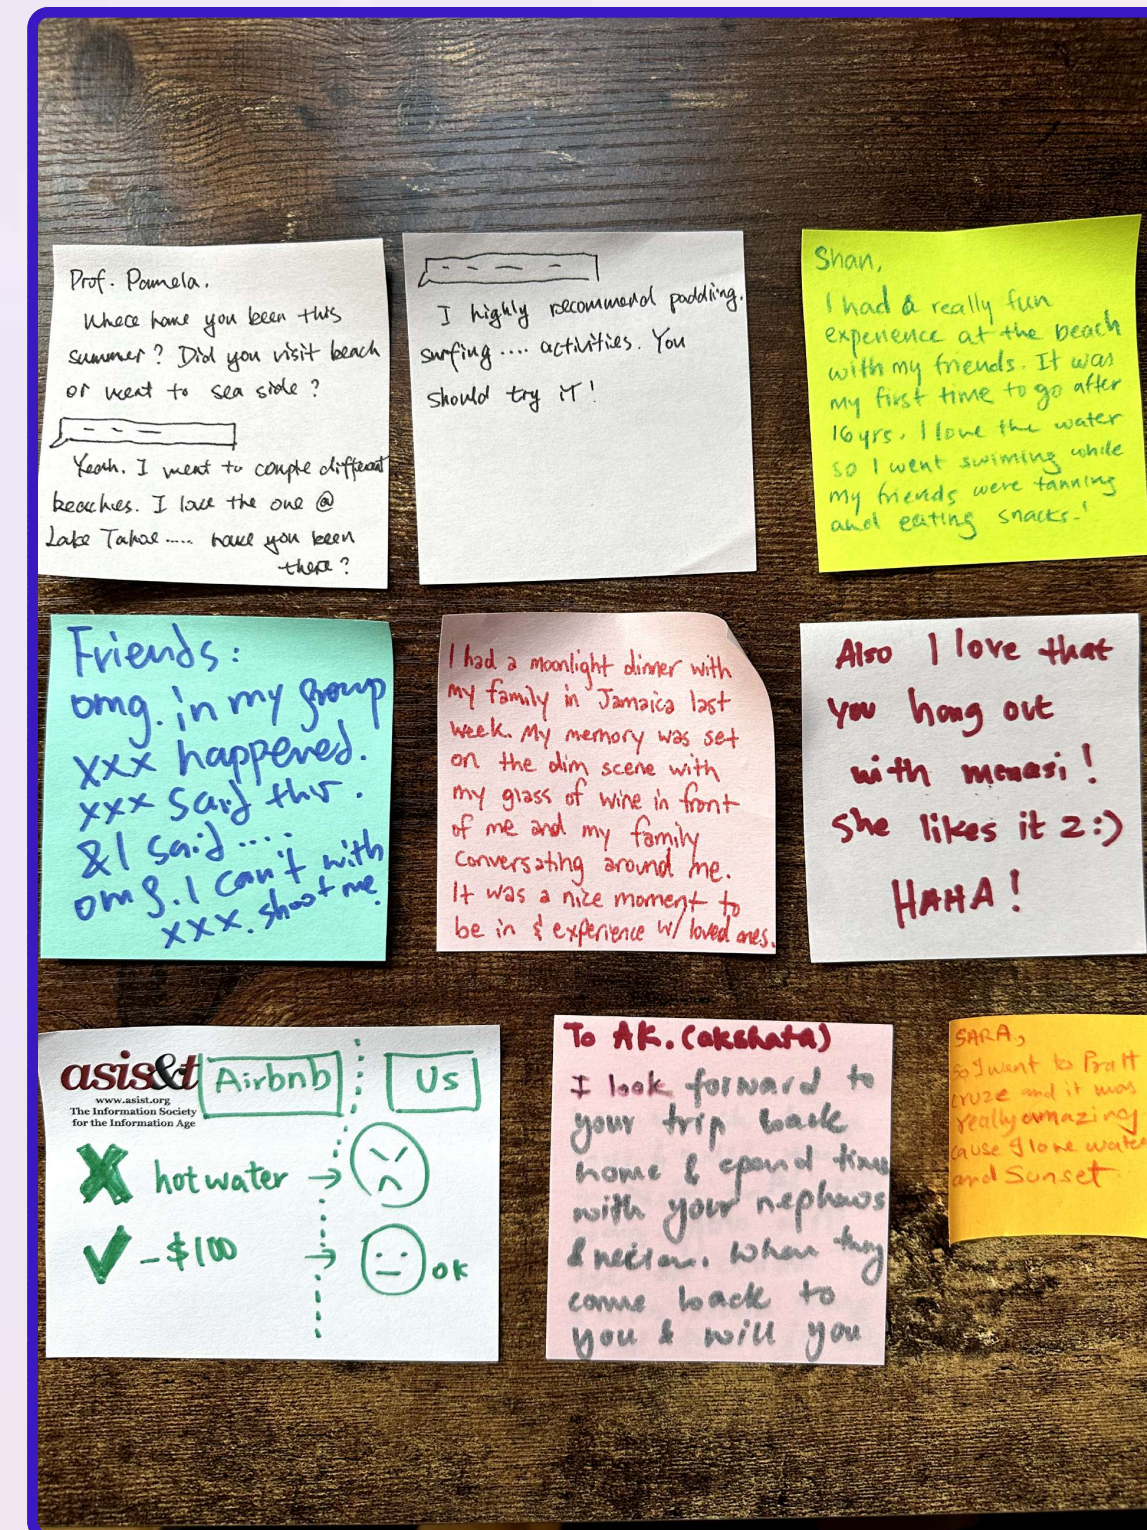 Prof. Pamela.
Where have you been this
summer? Did you visit beach
or went to sea side?
Yeah. I went to couple different
beaches. I love the one @
Lake Tahoe..... have you been
there?
I highly recommend paddling.
surfing .... activities. You
should try it!
Shan,
I had a really fun
experience at the beach
with my friends. It was
my first time to go after
16yrs. I love the water
so I went swiming while
my friends were tanning
and eating snacks.!
Friends:
omg. in my group
xxx happened.
xxx said this.
& I said...
omg. I can't with
xxx. shoot me.
I had a moonlight dinner with
my family in Jamaica last
week. My memory was set
on the dim scene with
my glass of wine in front
of me and my family
conversating around me.
It was a nice moment to
be in & experience w/ loved ones.
Also I love that
you hang out
with manasi!
she likes it 2:)
HAHA!
asis&t
www.asist.org
The Information Society
for the Information Age
Airbnb
Us
hot water
-$100
ok
To AK. (akshata)
I look forward to
your trip back
home & spend time
with your nephews
& When they
come back to
you & will you
SARA,
so I went to Pratt
cruze and it was
really amazing
cause I love water
and Sunset